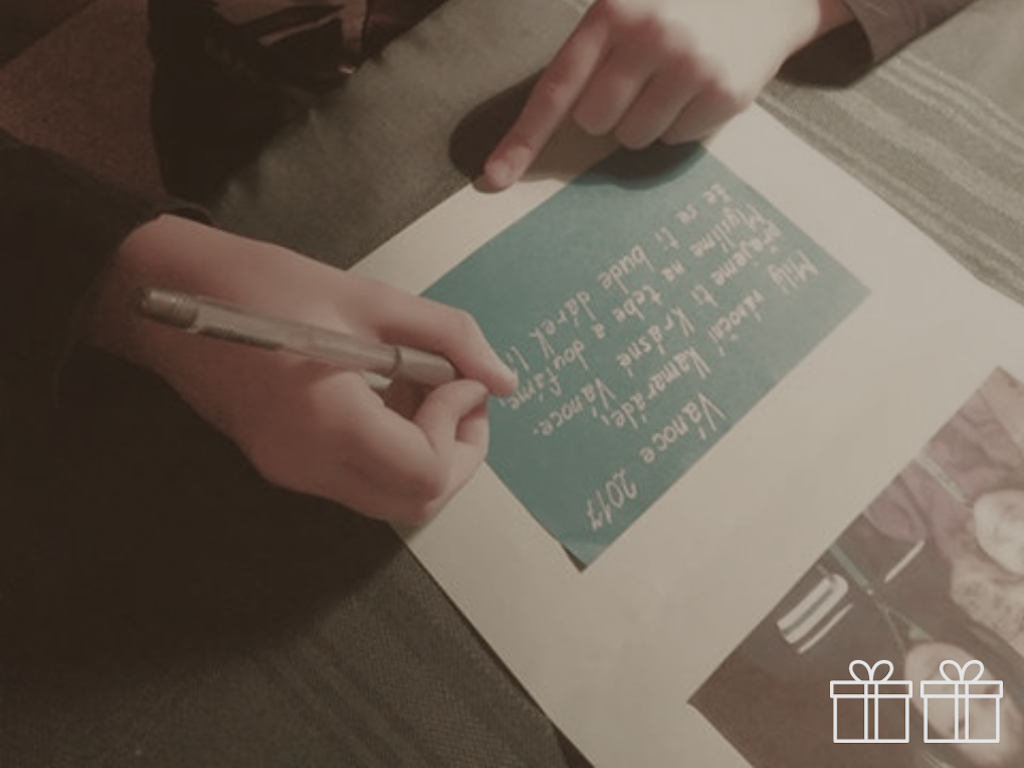 Vánoce 2017
Milý vánoční kamaráde,
přajeme ti krásné Vánoce.
Myslíme na tebe a doufáme,
že se ti bude dárek lí